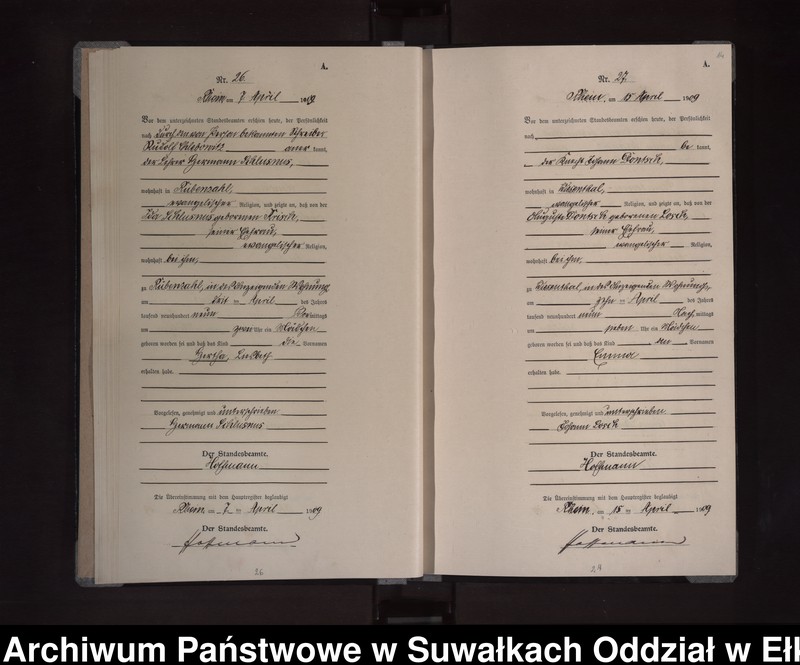 A.
Nr. 26.
Rhein, am 7. April 1909
Vor dem unterzeichneten Standesbeamten erschien heute, der Persönlichkeit
nach durch den von Person bekannten Schreiber
Rudolf anerkannt,
der Lehrer Hermann
wohnhaft in Rübenzahl,
evangelischer Religion, und zeigte an, daß von der
geborenen
seiner Ehefrau,
evangelischer Religion,
wohnhaft bei ihm,
zu Rübenzahl, in des Anzeigenden Wohnung
am April des Jahres
tausend neunhundert neun Vormittags
um zwei Uhr ein Mädchen
geboren worden sei und daß das Kind die Vornamen
Hertha, Lisbeth
erhalten habe.
Vorgelesen, genehmigt und unterschrieben
Hermann
Der Standesbeamte.
Hoffmann
Die Übereinstimmung mit dem Hauptregister beglaubigt
Rhein, am 7. April 1909
Der Standesbeamte.
Hoffmann
26
A.
Nr. 27.
Rhein, am 15. April 1909
Vor dem unterzeichneten Standesbeamten erschien heute, der Persönlichkeit
nach
bekannt,
der Knecht Johann
wohnhaft in
evangelischer Religion, und zeigte an, daß von der
Auguste geborenen
seiner Ehefrau,
evangelischer Religion,
wohnhaft bei ihm,
zu in des Anzeigenden Wohnung,
am zehn ten April des Jahres
tausend neunhundert neun Nachmittags
um sieben Uhr ein Mädchen
geboren worden sei und daß das Kind den Vornamen
Emma
erhalten habe.
Vorgelesen, genehmigt und unterschrieben
Johann
Der Standesbeamte.
Hoffmann
Die Übereinstimmung mit dem Hauptregister beglaubigt
Rhein, am 15. April 1909
Der Standesbeamte.
Hoffmann
Archiwum Państwowe w Suwałkach Oddział w Ełk